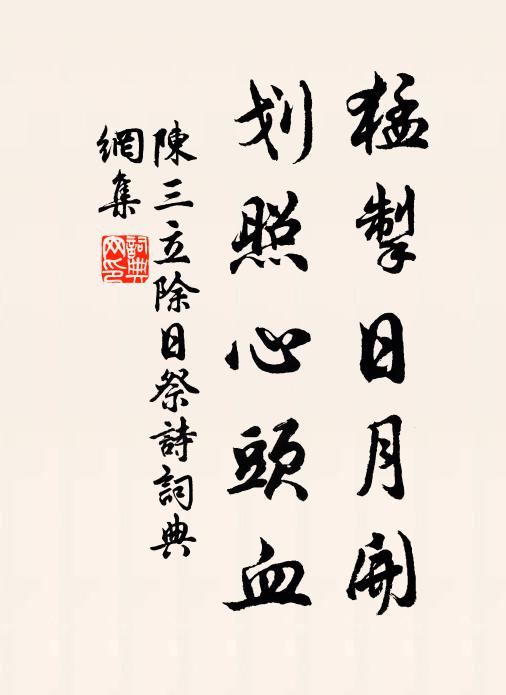 猛掣日月開
划照心頭血
陳三立除日祭詩詞典
網集
詞典網印